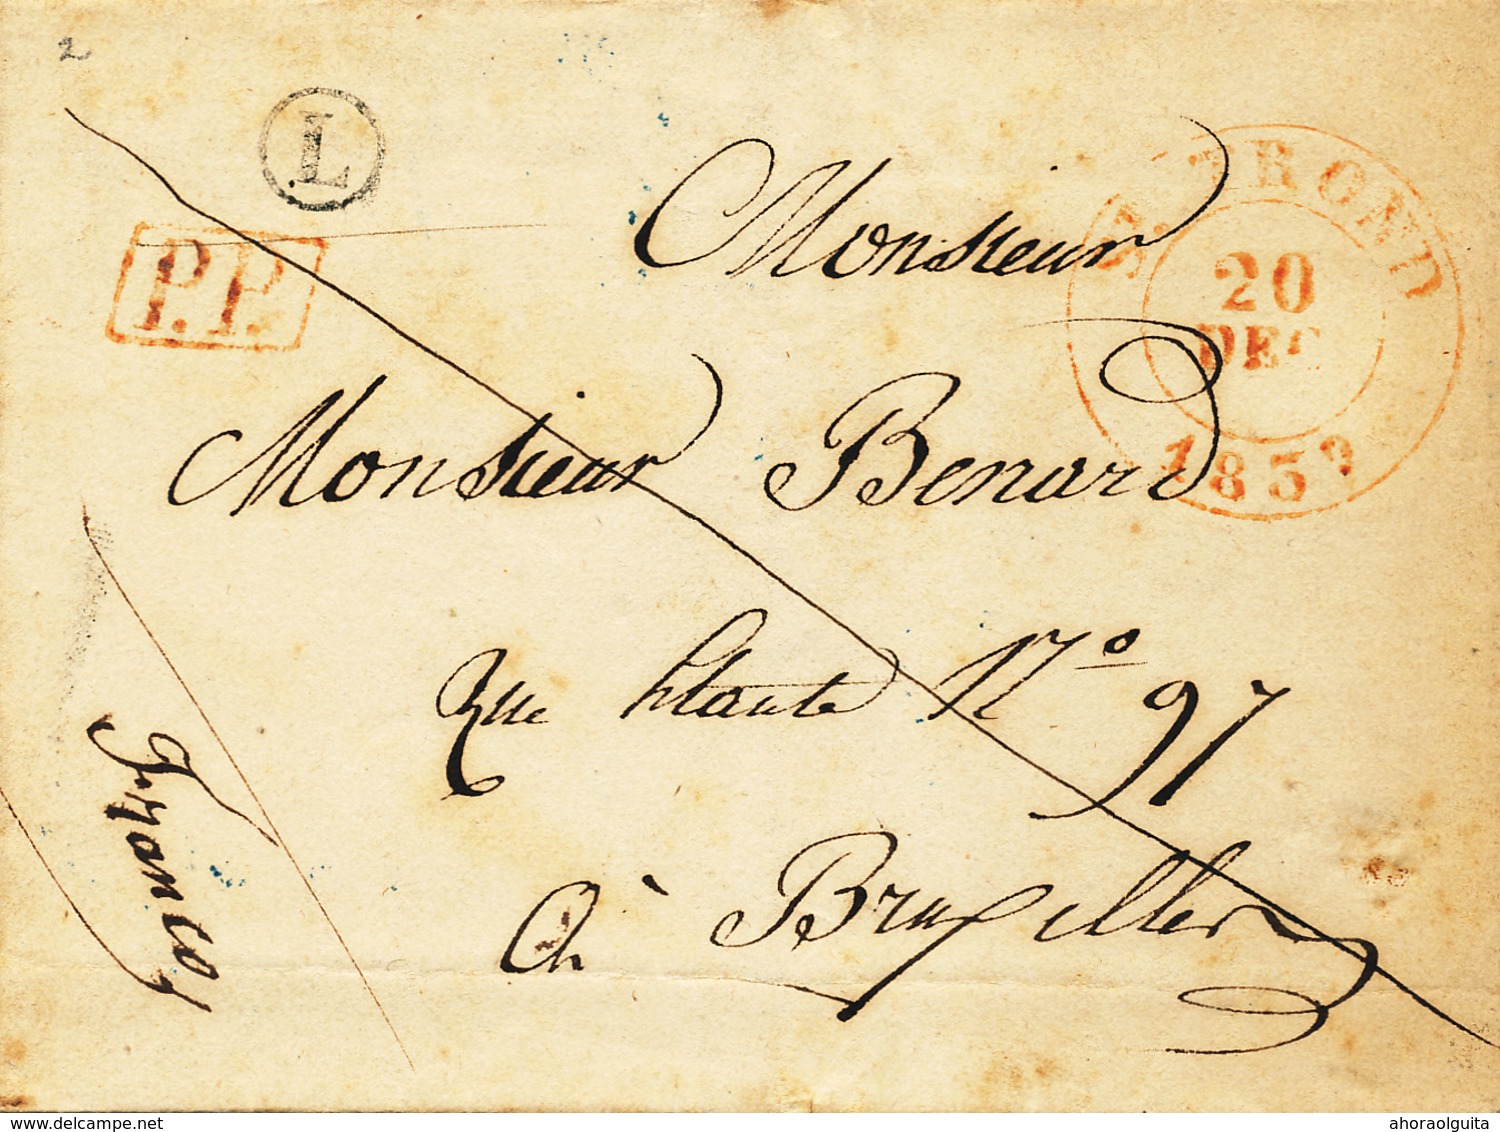 2
L
P.P.
ST TROND
20
DEC
1839
Monsieur
Monsieur Benard
Rue Haute N° 97
à Bruxelles
franco
delcampe.net
ahoraolguita